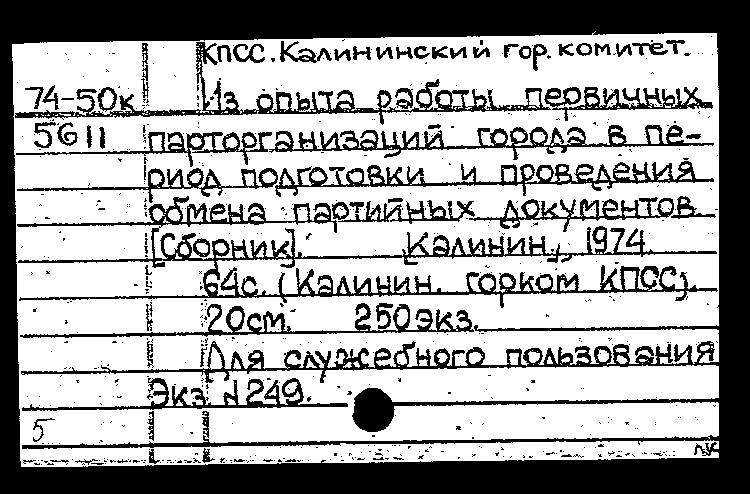 КПСС. Калининский гор. комитет.
74-50к Из опыта работы первичных
5611 парторганизаций города в пе-
риод подготовки и проведения
обмена партийных документов
[Сборник]. [Калинин], 1974.
64с. (Калинин. горком КПСС).
20см. 250экз.
Для служебного пользования
Экз №249.
5